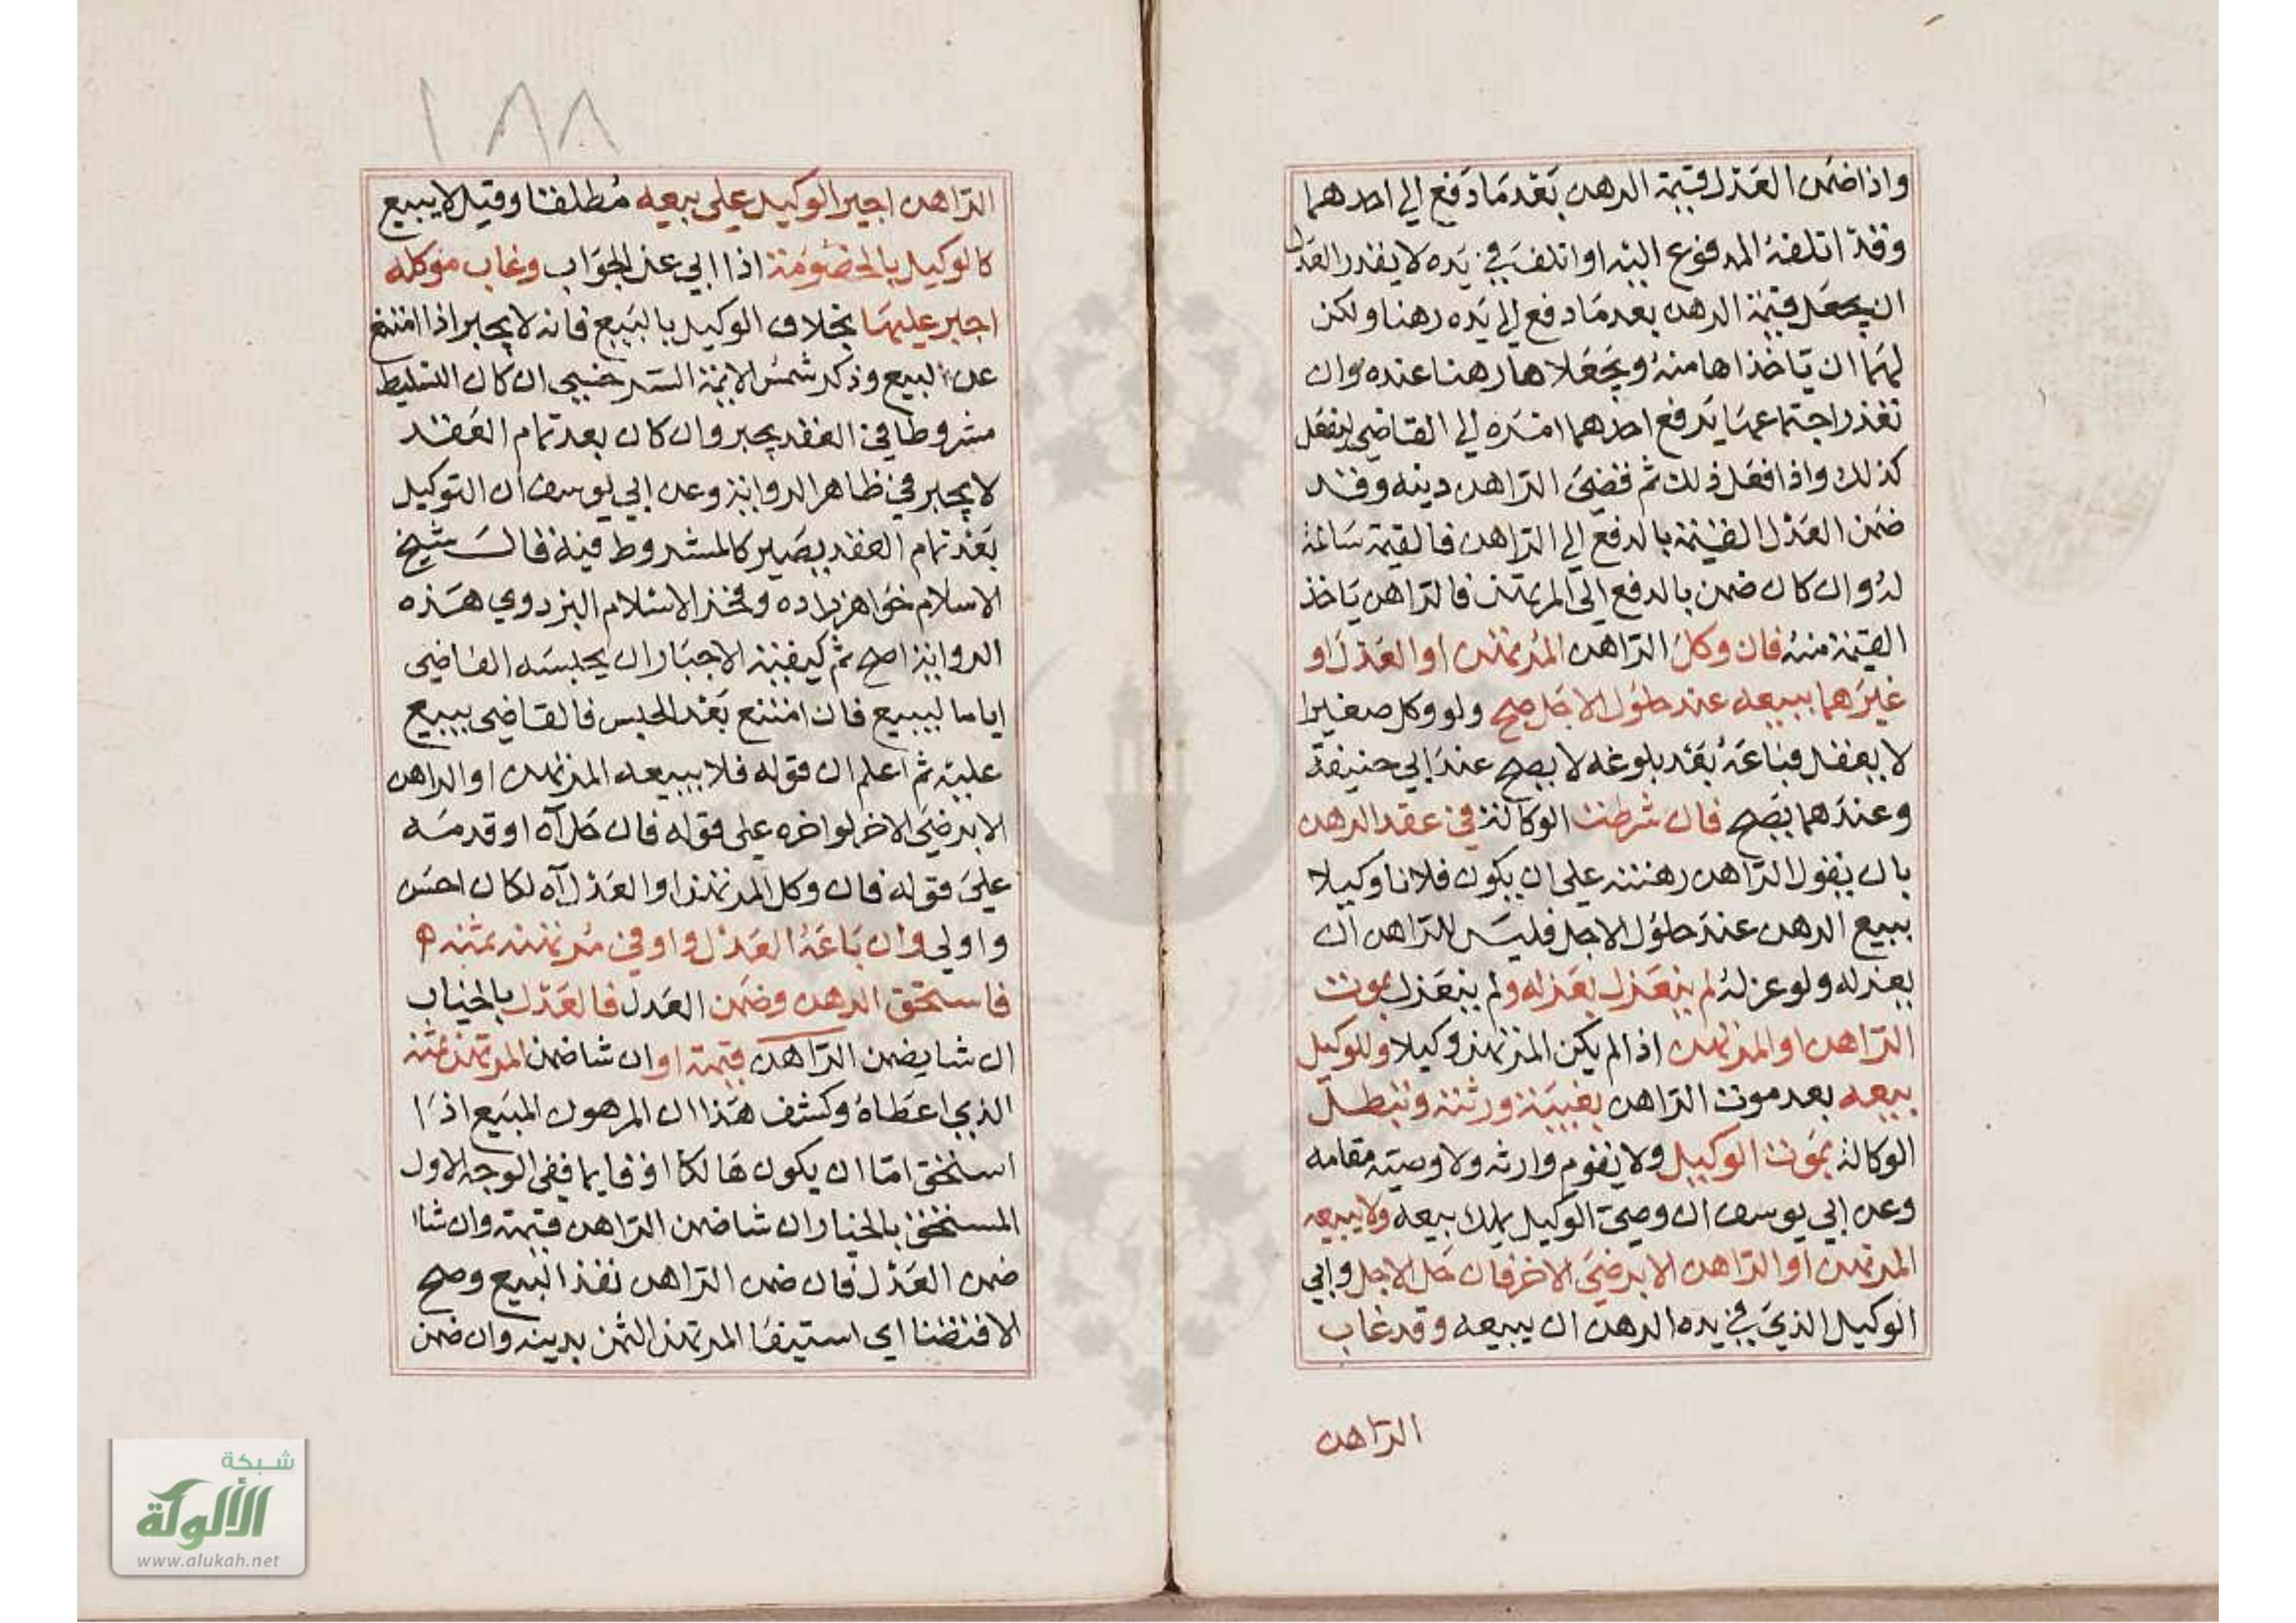 واذا ضمن العدل قيمة الرهن بعد ما دفع الي احدهما
وقد اتلفه المدفوع اليه او اتلف في يده لا يقدر العدل
ان يجعل قيمة الرهن بعد ما دفع الي يده رهنا ولكن
لهما ان ياخذاها منه ويجعلاها رهنا عنده وان
تعذر اجتماعهما يرفع احدهما امره الي القاضي ليفعل
كذلك واذا فعل ذلك ثم قضي الراهن دينه وقد
ضمن العدل القيمة بالدفع الي الراهن فالقيمة سالمة
له وان كان ضمن بالدفع الي المرتهن فالراهن ياخذ
القيمة منه فان وكل الراهن المرتهن او العدل او
غيرهما ببيعه عند حلول الاجل صح ولو وكل صغيرا
لا يعقل فباعه بعد بلوغه لا يصح عند ابي حنيفة
وعندهما يصح فان شرطت الوكالة في عقد الرهن
بان يقول الراهن رهنته علي ان يكون فلانا وكيلا
ببيع الرهن عند حلول الاجل فليس للراهن ان
يعزله ولو عزله لم ينعزل بعزله ولم ينعزل بموت
الراهن او المرتهن اذا لم يكن المرتهن وكيلا وللوكيل
بيعه بعد موت الراهن بغيبة ورثته وتبطل
الوكالة بموت الوكيل ولا يقوم وارثه ولا وصيته مقامه
وعن ابي يوسف ان وصي الوكيل يملك بيعه ولا يبيعه
المرتهن او الراهن الا برضي الاخر فان حل الاجل وابي
الوكيل الذي في يده الرهن ان يبيعه وقد غاب
الراهن
١٨٨
الراهن اجبر الوكيل علي بيعه مطلقا وقيل لا يبيع
كالوكيل بالخصومة اذا ابي عن الجواب وغاب موكله
اجبر عليها بخلاف الوكيل بالبيع فانه لا يجبر اذا امتنع
عن البيع وذكر شمس الايمة السرخسي ان كان التسليط
مشروطا في العقد يجبر وان كان بعد تمام العقد
لا يجبر في ظاهر الرواية وعن ابي يوسف ان التوكيل
بعد تمام العقد يصير كالمشروط فيه قال شيخ
الاسلام خواهر زاده وفخر الاسلام البزدوي هذه
الرواية اصح ثم كيفية الاجبار ان يحبسه القاضي
اياما ليبيع فان امتنع بعد الحبس فالقاضي يبيع
عليه ثم اعلم ان قوله فلا يبيعه المرتهن او الراهن
الا برضي الاخر لو اخره علي قوله فان حل آه او قدمه
علي قوله فان وكل المرتهن او العدل آه لكان احسن
واولي وان باعه العدل واوفي مرتهنه ثمنه ه
فاستحق الرهن وضمن العدل فالعدل بالخيار
ان شا يضمن الراهن قيمته او ان شا ضمن المرتهن ثمنه
الذي اعطاه وكشف هذا ان المرهون المبيع اذا
استحق اما ان يكون هالكا او قايما ففي الوجه الاول
المستحق بالخيار ان شا ضمن الراهن قيمته وان شا
ضمن العدل فان ضمن الراهن نفذ البيع وصح
الاقتضا اي استيفا المرتهن الثمن بدينه وان ضمن
شبكة
الألوكة
www.alukah.net